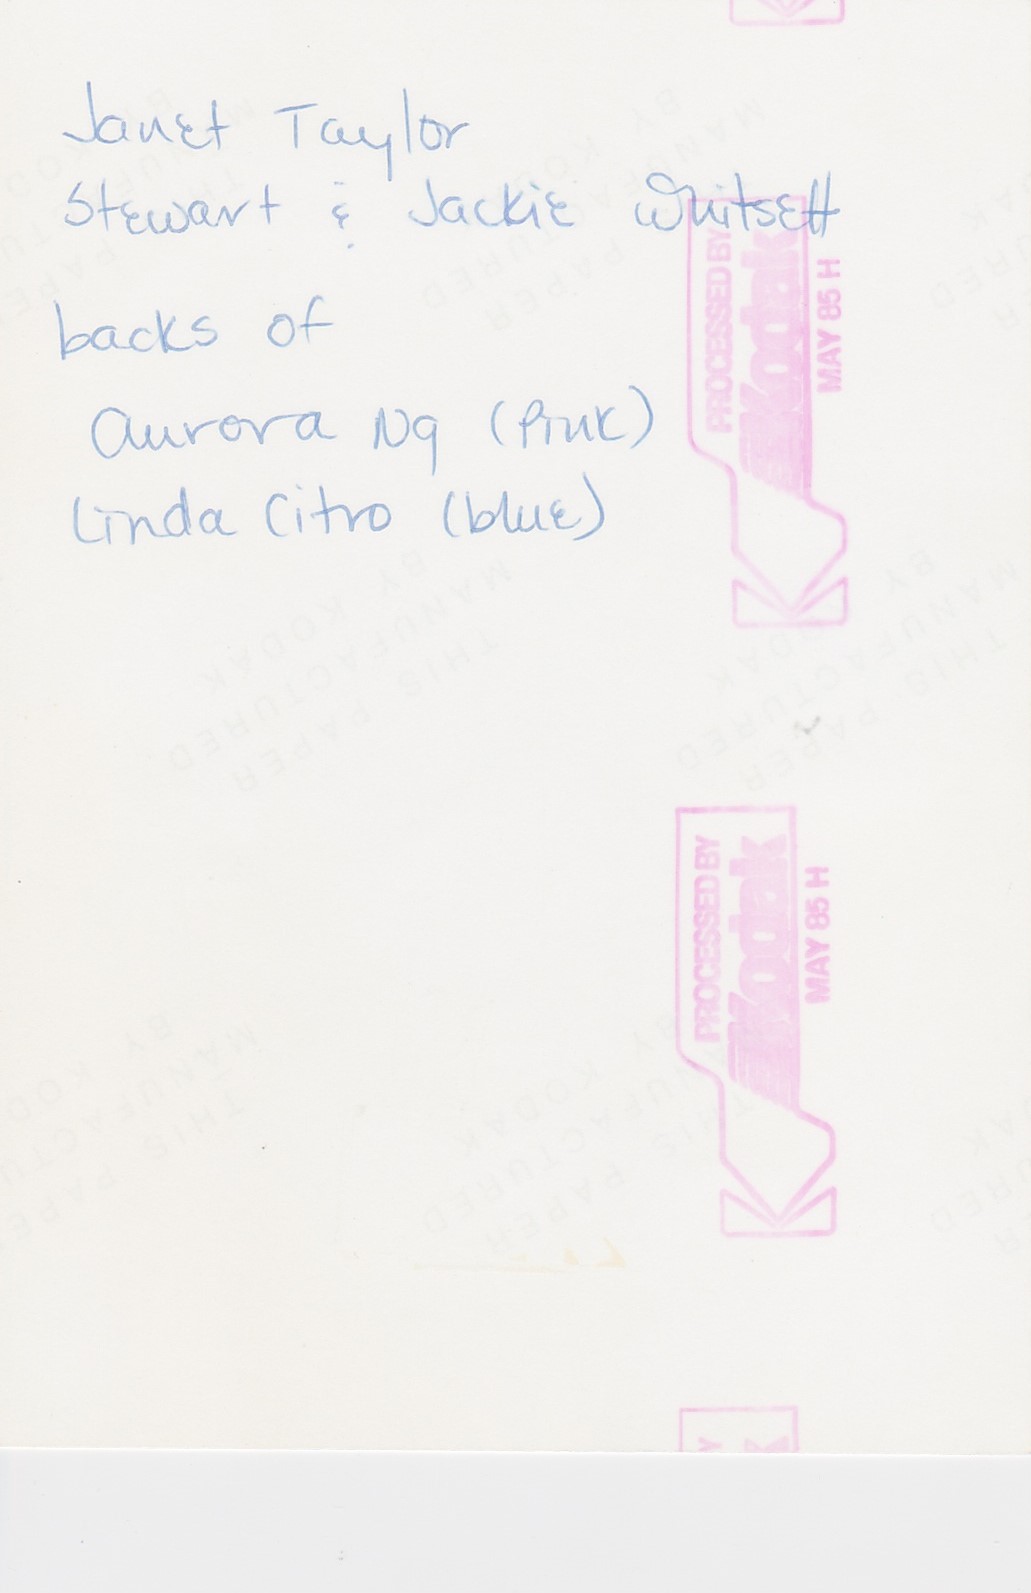 Janet Taylor
Stewart & Jackie Whitsett
backs of
Aurora Ng (Pink)
Linda Citro (blue)
PROCESSED BY
Kodak
MAY 85 H
PROCESSED BY
Kodak
MAY 85 H
THIS PAPER
MANUFACTURED
BY KODAK